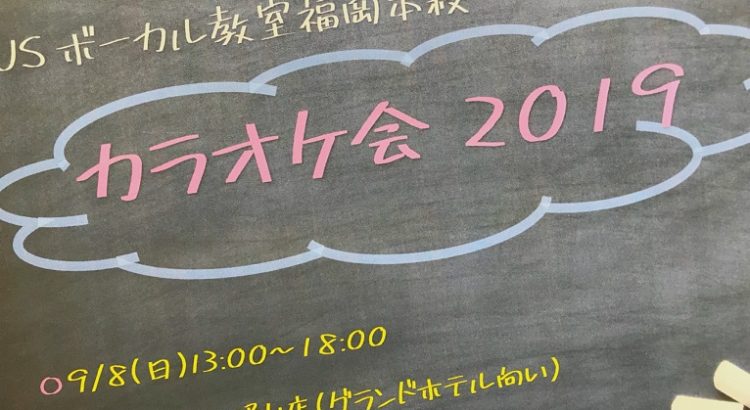 USボーカル教室福岡本校
カラオケ会 2019
○9/8(日)13:00~18:00
店(グランドホテル向い)